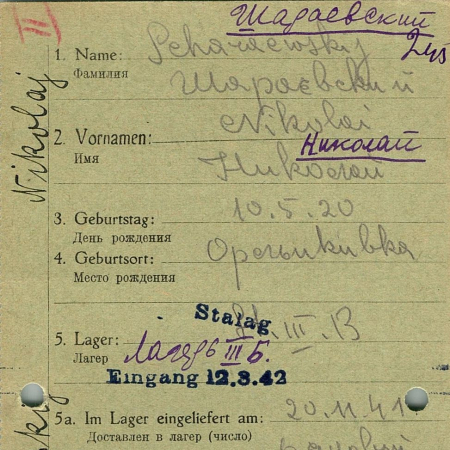 III
Шараевский
245
1. Name: Scharaewskij
Фамилия
Шараєвский
Nikolai
2. Vornamen: Николай
Имя
Николай
3. Geburtstag: 10.5.20
День рождения
4. Geburtsort:
Место рождения
Stalag
St. III. B
5. Lager:
Лагерь III Б.
Лагер
Eingang 12.3.42
5a. Im Lager eingeliefert am: 20.11.41
Доставлен в лагер (число)
Nikolaj